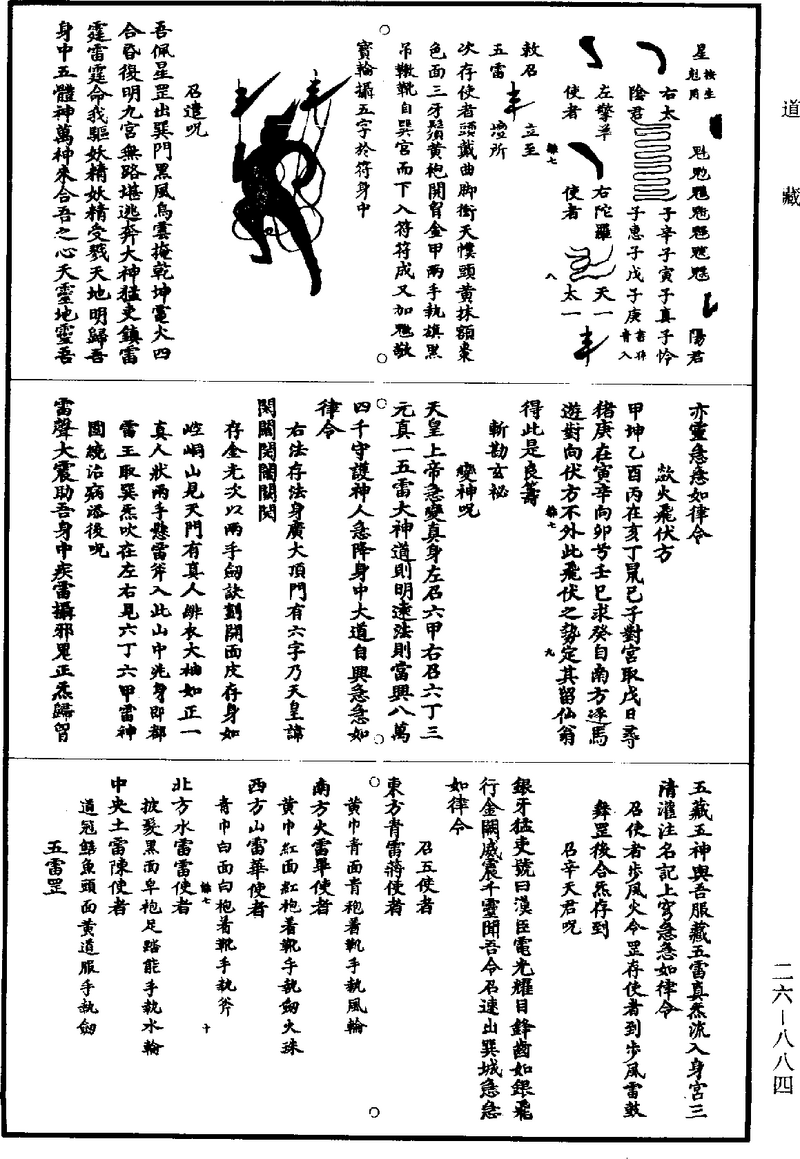 道藏
星
右太
陰君
左擎羊
使者
右陀羅
使者
天一
太一
陽君
敕召
立至
五雷
壇所
次存使者頭戴曲脚衝天幞頭黃抹額棗
色面三牙鬚黃袍開胷金甲兩手執旗黑
吊鞁靴自巽宮而下入符符成又加魒敬
寶輪攝五字於符身中
召遣呪
吾佩星罡出巽門黑風烏雲掩乾坤電火四
合昏復明九宮無路堪逃奔大神猛吏鎮雷
霆雷霆命我驅妖精妖精受戮天地明歸吾
身中五體神萬神來合吾之心天靈地靈吾
亦靈急急如律令
歘火飛伏方
甲坤乙酉丙在亥丁鼠己子對宮取戊日尋
猪庚在寅辛向卯兮壬巳求癸自南方逐馬
遊對向伏方不外此飛伏之勢定其留仙翁
得此是良籌
斬勘玄祕
變神呪
天皇上帝急變真身左召六甲右召六丁三
元真一五雷大神道則明速法則當興八萬
四千守護神人急降身中大道自興急急如
律令
右法存法身廣大頂門有六字乃天皇諱
存金光次以兩手劒訣劃開面皮存身如
崆峒山見天門有真人緋衣大袖如正一
真人狀兩手懸雷斧入此山中洗身即都
雷王取巽炁吹在左右見六丁六甲雷神
圍繞治病添後呪
雷聲大震助吾身中疾雷攝邪鬼正炁歸留
五藏五神與吾服藏五雷真炁流入身宮三
清灌注名記上穹急急如律令
召使者步風火令罡存使者到步風雷鼓
彝罡後合炁存到
召辛天君呪
銀牙猛吏號曰漢臣電光耀目鋒齒如銀飛
行金闕威震千靈聞吾令召速出巽城急急
如律令
召五使者
東方青雷蔣使者
黃巾青面青袍著靴手執風輪
南方火雷畢使者
黃巾紅面紅袍著靴手執劒火珠
西方山雷華使者
青巾白面白袍著靴手執斧
北方水雷雷使者
披髮黑面皁袍足踏能手執水輪
中央土雷陳使者
道冠鯰魚頭面黃道服手執劒
五雷罡
二六—八八四